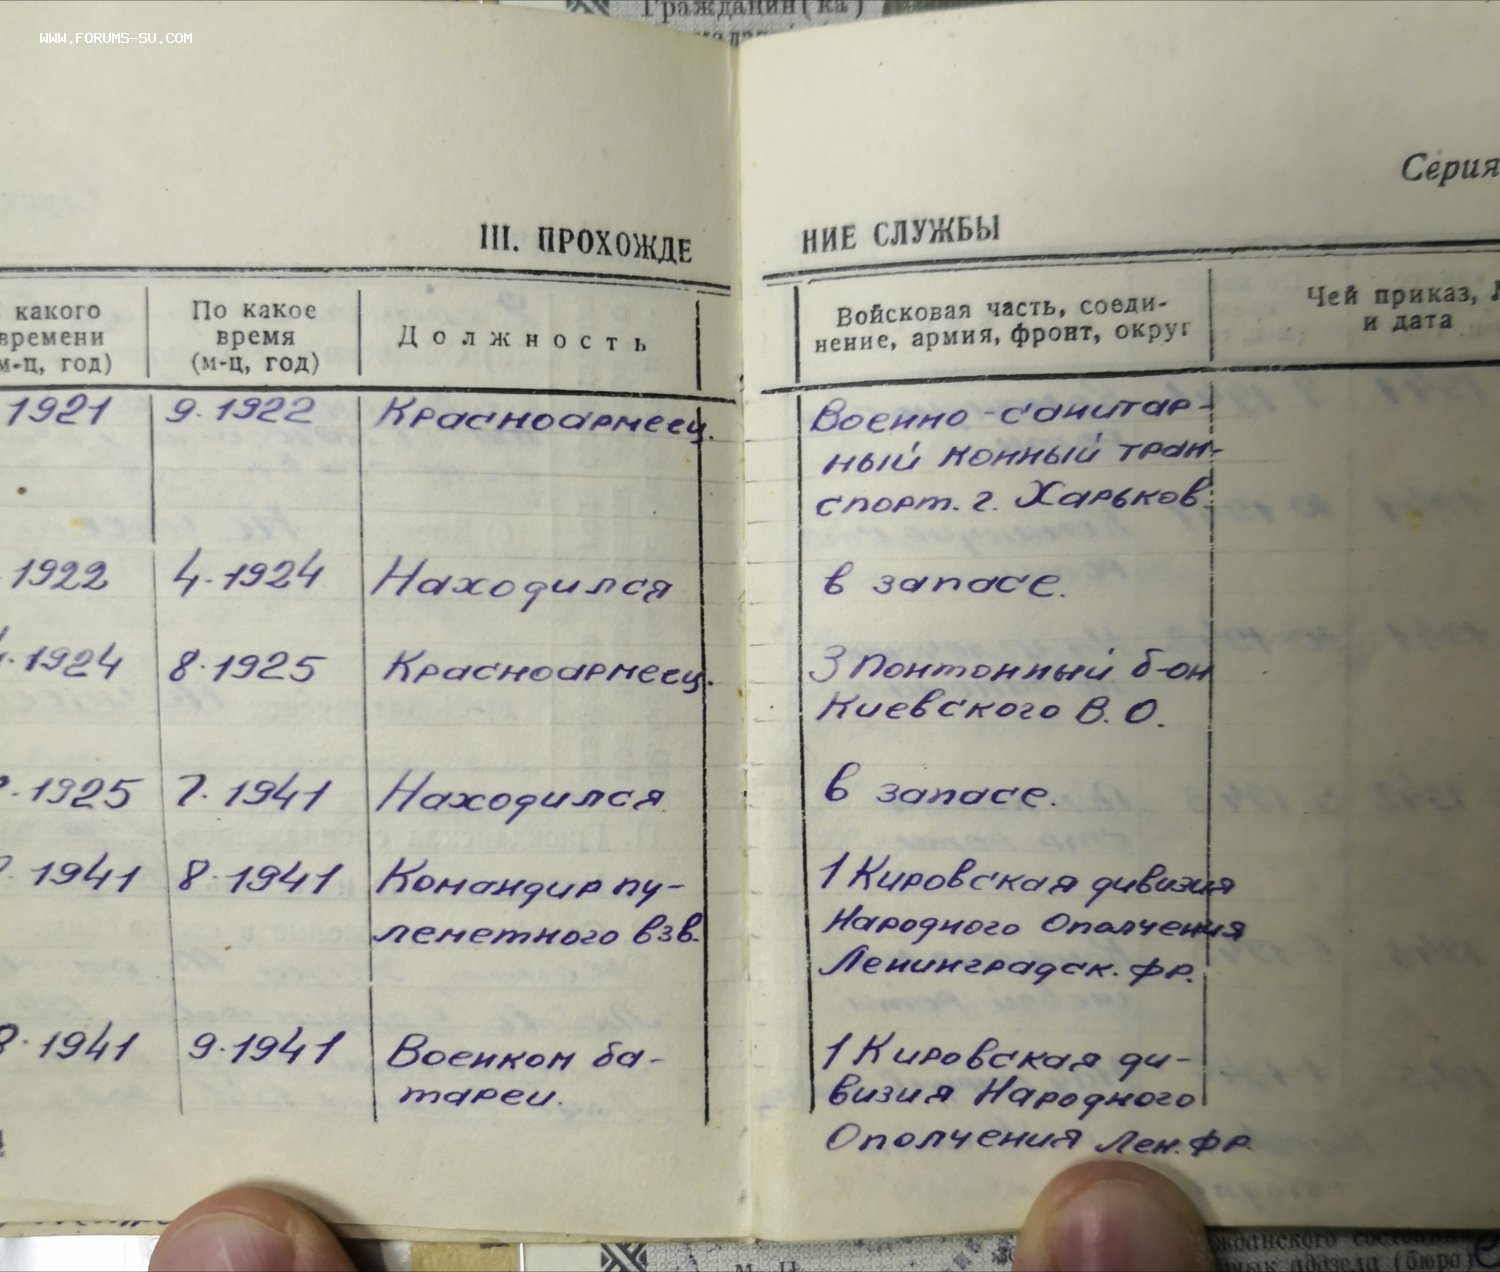 Гражданин(ка)
WWW.FORUMS-SU.COM
Серия
III. ПРОХОЖДЕ НИЕ СЛУЖБЫ
какого времени (м-ц, год)
По какое время (м-ц, год)
Должность
Войсковая часть, соеди-
нение, армия, фронт, округ
Чей приказ,
и дата
1921 9.1922 Красноармеец. Военно-санитар-
ный конный тран-
спорт. г. Харьков.
1922 4.1924 Находился в запасе.
4.1924 8.1925 Красноармеец. 3 Понтонный б-он
Киевского В.О.
1925 7.1941 Находился в запасе.
1941 8.1941 Командир пу- 1 Кировская дивизия
леметного взв. Народного Ополчения
Ленинградск. фр.
8.1941 9.1941 Военком ба- 1 Кировская ди-
тареи. визия Народного
Ополчения Лен. фр.